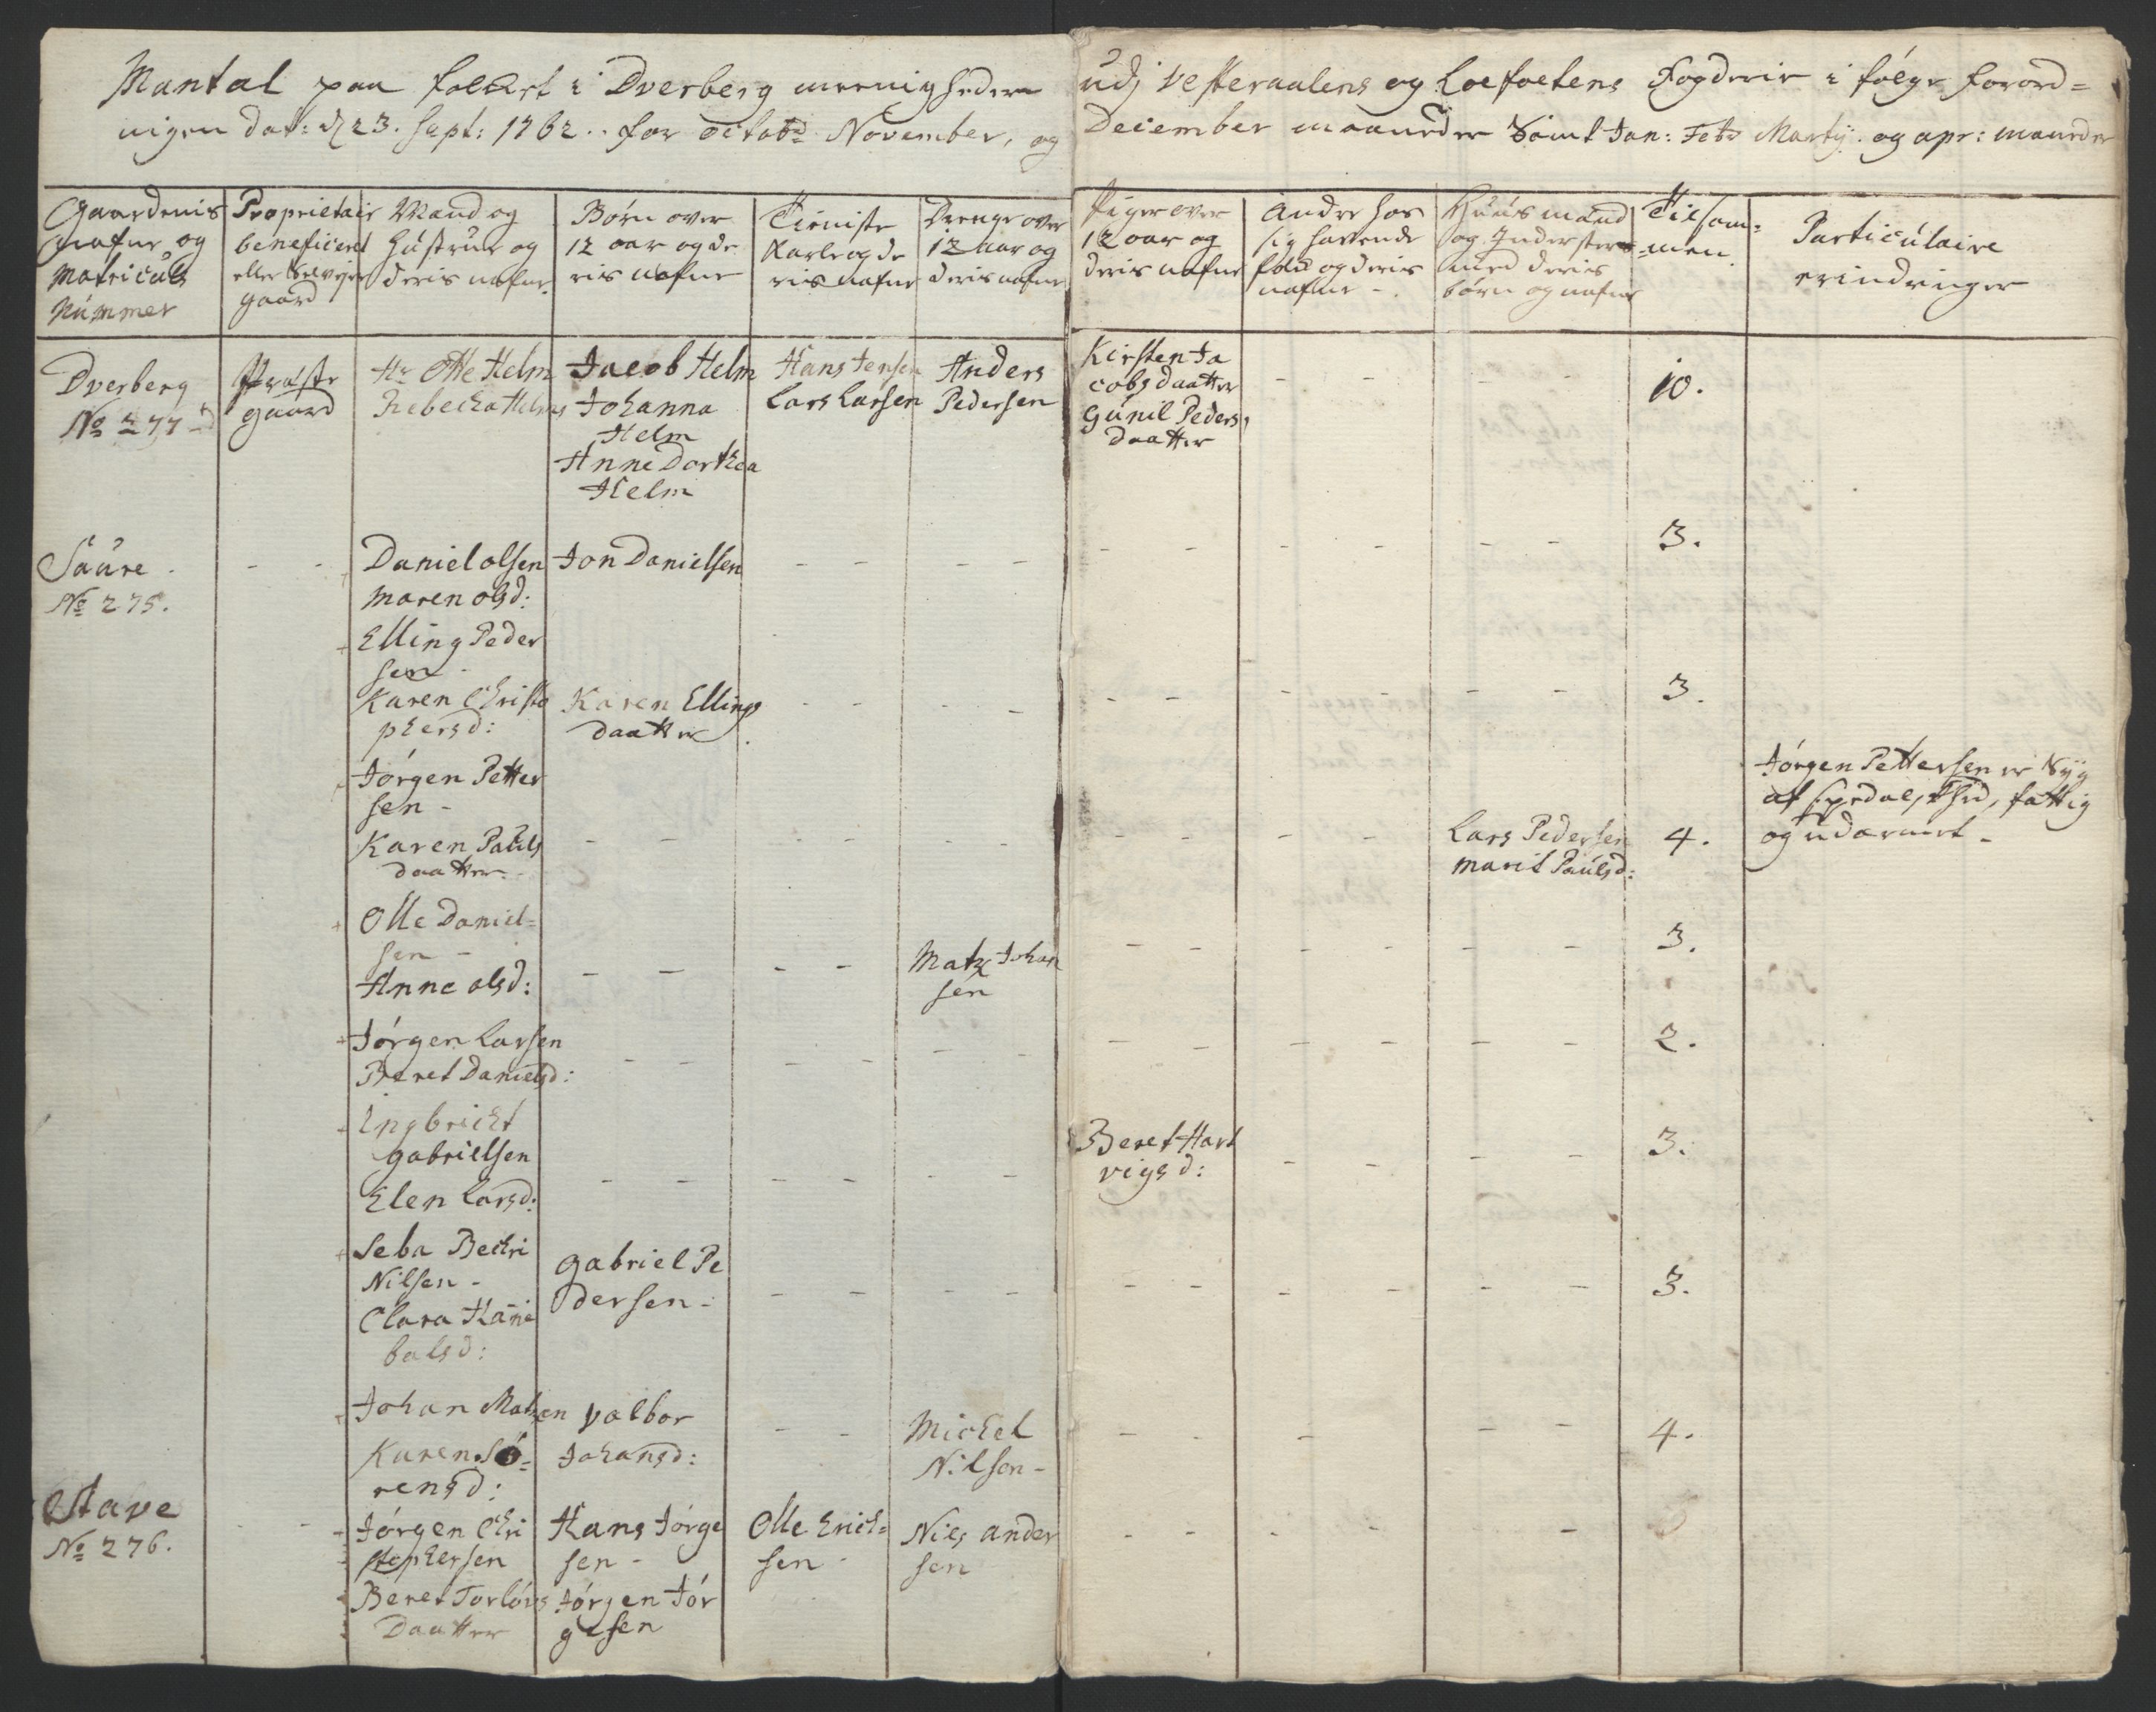 Mantal paa folket i Dverberg meenigheder
udj Vesteraalens og Loefoetens Fogderie i følge Forord=
nigen dat: d 23. Sept: 1762.. for octobr November, og
December maaneder Samt Jan: Febr Martij. og apr: maaneder
Gaardenis
nafne og
Matriculs
Nummer
Proprietair
beneficeret
eller Selveyer
gaard
Mand og
Hustrue og
deris nafne
Børn over
12 aar og de
ris nafne
Tieniste
Karle og de
ris nafne
Drenge over
12 aar og
deris nafne
Piger over
12 aar og
deris nafne
Andre hos
sig havende
folk og deris
nafne -
Huus mænd
og Inderster
med deris
børn og nafne
Tilsam=
men.
Particulaire
erindringer
Dverberg
No 277
Præste
gaard
Hr Otte Helm
Rebecka Helms
Jacob Helm
Johanna
Helm
Anne Dorthea
Helm
Hans Jensen
Lars Larsen
Anders
Pedersen
Kirsten Ja
cobs daatter
Gunil Peders
daatter
10.
Saure
No 275.
Daniel olsen
Maren olsd:
Jon Danielsen
3.
Elling Peder
sen -
Karen Christo
phersd:
Karen Ellings
daatter
3.
Jørgen Petter
sen -
Karen Pauls
daatter -
Lars Pedersen
Marit Paulsd:
4.
Jørgen Pettersen er Syg
af Spedalskhed, fattig
og udarmet -
Olle Daniel=
sen -
Anne olsd:
Matz Johan
sen
3.
Jørgen Larsen
Beret Danielsd:
2.
Ingbricht
gabrielsen
Elen Larsd:
Beret Hart
vigsd:
3.
Seba Bechri
Nilsen -
Clara Hani
balsd:
gabriel Pe
dersen -
3.
Johan Matzen
Karen Sø=
rensd:
Valbor
Johansd:
Michel
Nilsen -
4.
Stave
No 276.
Jørgen Chri
stophersen
Beret Torlövs
Daatter
Hans Jørge
sen -
Jørgen Jør
gesen
Olle Erich=
sen -
Niels ander
sen